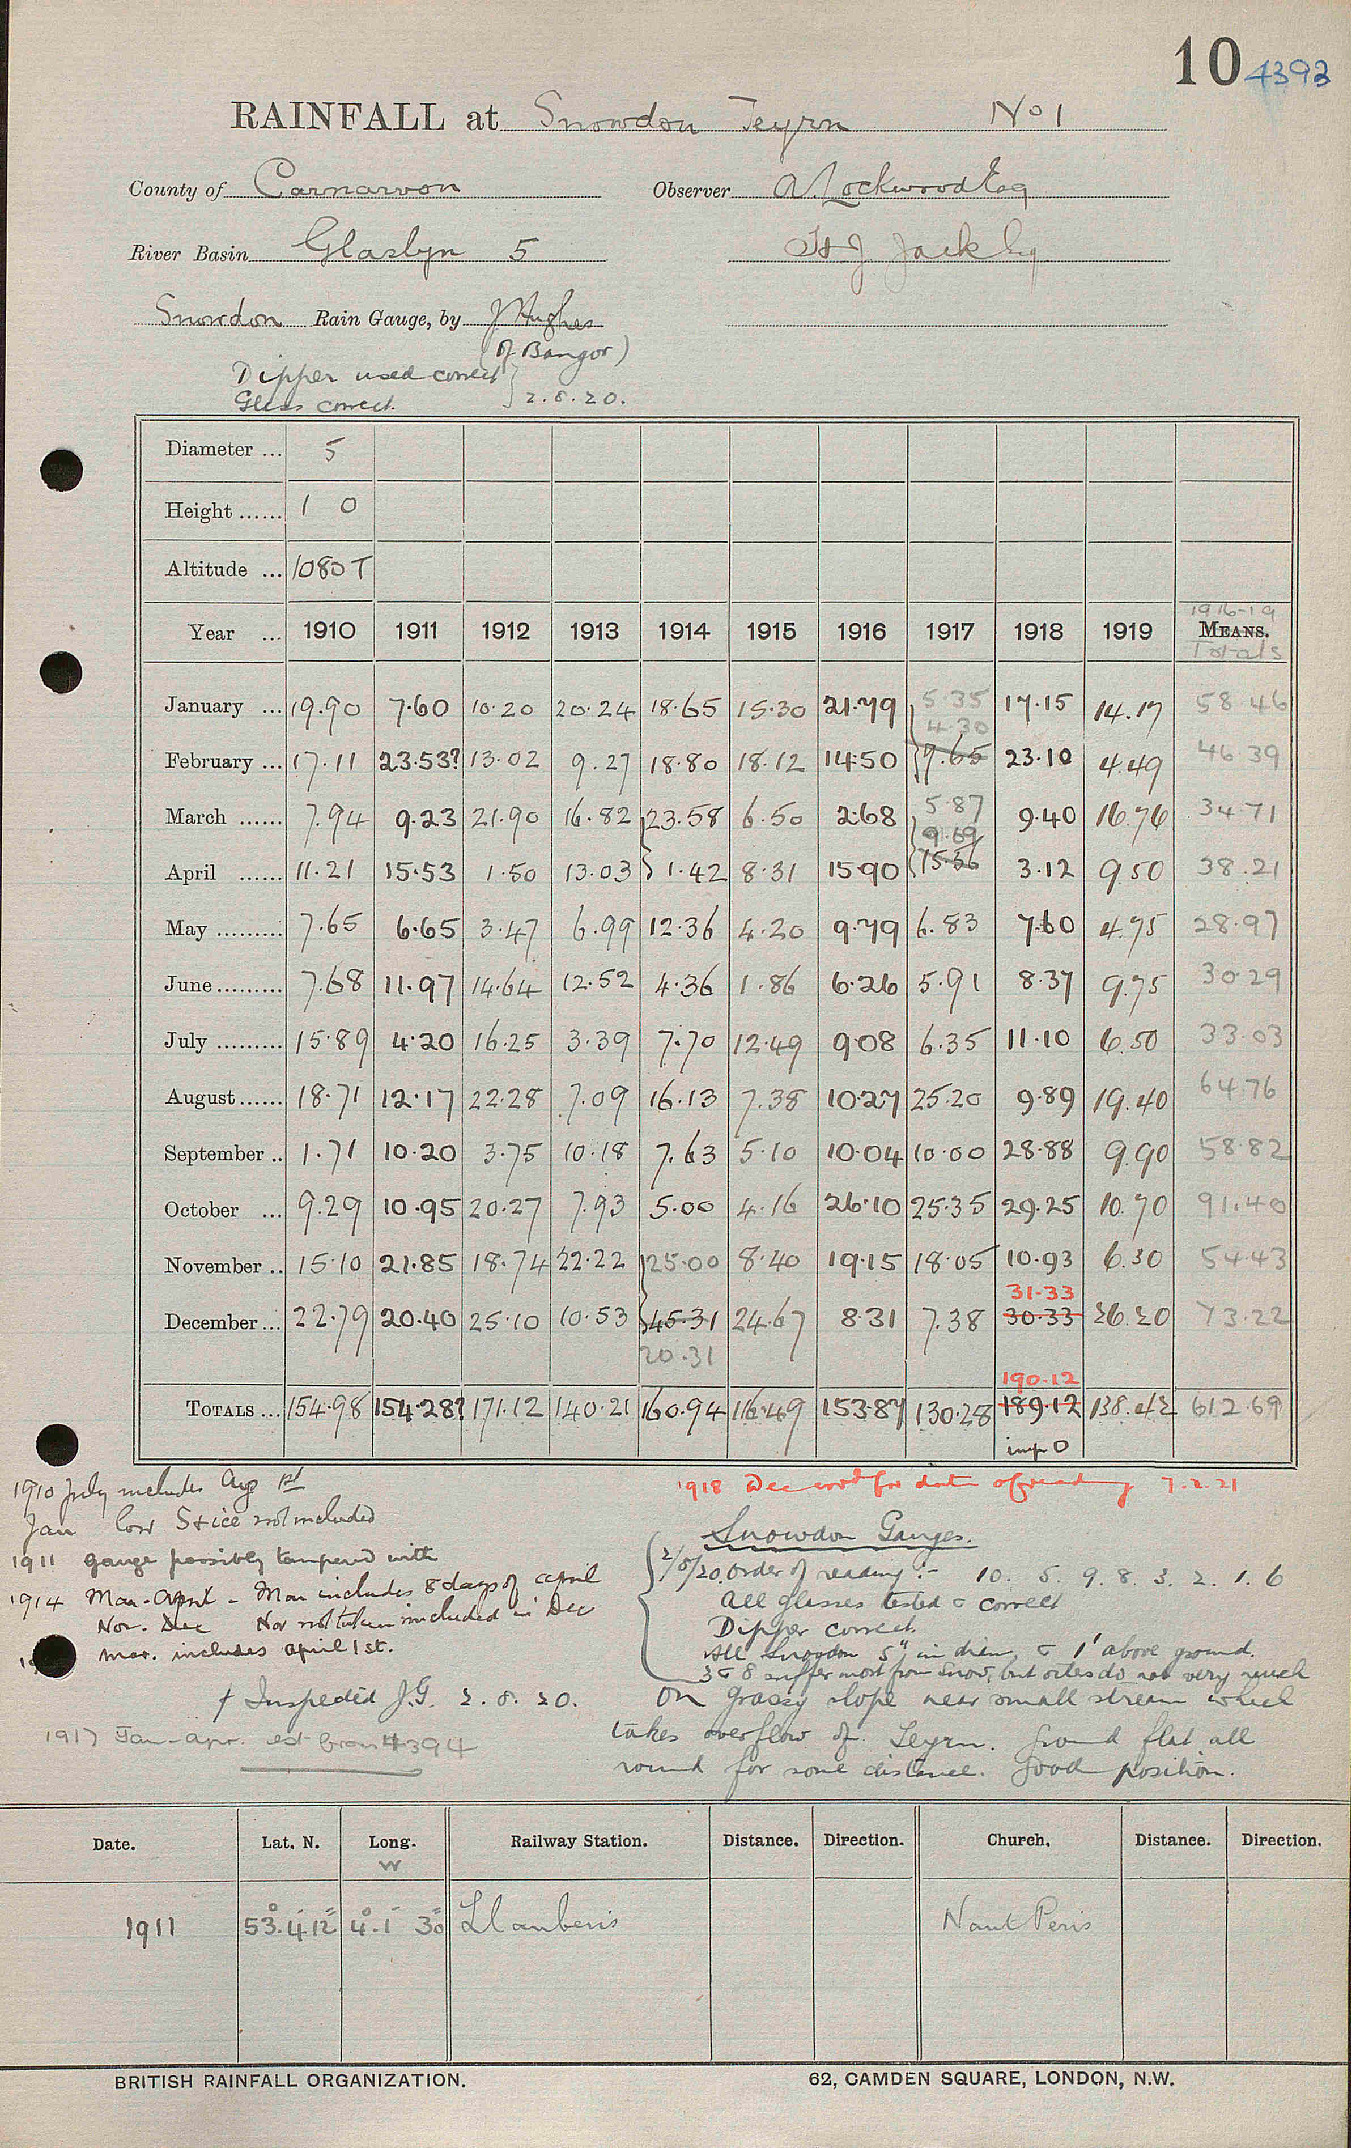 10 4392
RAINFALL at Snowdon Teyrn No 1
County of Carnarvon Observer A. Lockwood Esq
River Basin Glaslyn 5 H J Jack Esq
Snowdon Rain Gauge, by J Hughes
(of Bangor)
Dipper used correct
Glass correct. } 2.8.20.
Diameter ... 5
Height ...... 1 0
Altitude ... 1080 T
1916-19
Year ... 1910 1911 1912 1913 1914 1915 1916 1917 1918 1919 MEANS.
Totals
January ... 19.90 7.60 10.20 20.24 18.65 15.30 21.79 5.35 17.15 14.17 58.46
4.30
February ... 17.11 23.53? 13.02 9.27 18.80 18.12 14.50 9.65 23.10 4.49 46.39
March ...... 7.94 9.23 21.90 16.82 23.58 6.50 2.68 5.87 9.40 16.76 34.71
9.69
April ...... 11.21 15.53 1.50 13.03 1.42 8.31 15.90 15.56 3.12 9.50 38.21
May ......... 7.65 6.65 3.47 6.99 12.36 4.20 9.79 6.83 7.60 4.75 28.97
June ......... 7.68 11.97 14.64 12.52 4.36 1.86 6.26 5.91 8.37 9.75 30.29
July ......... 15.89 4.20 16.25 3.39 7.70 12.49 9.08 6.35 11.10 6.50 33.03
August ...... 18.71 12.17 22.28 7.09 16.13 7.38 10.27 25.20 9.89 19.40 64.76
September .. 1.71 10.20 3.75 10.18 7.63 5.10 10.04 10.00 28.88 9.90 58.82
October ... 9.29 10.95 20.27 7.93 5.00 4.16 26.10 25.35 29.25 10.70 91.40
November .. 15.10 21.85 18.74 22.22 25.00 8.40 19.15 18.05 10.93 6.30 54.43
31.33
December ... 22.79 20.40 25.10 10.53 45.31 24.67 8.31 7.38 30.33 26.20 73.22
20.31
190.12
TOTALS ... 154.98 154.28? 171.12 140.21 160.94 116.49 153.87 130.28 189.12 138.42 612.69
imp 0
1910 July includes Aug 1st
Jan low S & ice not included
1911 gauge possibly tampered with
1914 Mar-April - Mar includes 8 days of april
Nov. Dec Nov not taken included in Dec
Mar. includes april 1st.
† Inspected J.G. 2.8.20.
1917 Jan-apr. est from 4394
1918 Dec corrd for date of reading 7.2.21
Snowdon Gauges.
2/8/20 Order of reading :- 10. 5. 9. 8. 3. 2. 1. 6
All glasses tested & correct
Dipper correct.
All Snowdon 5" in diam, & 1' above ground.
3 & 8 suffer most from snow, but sites do not very much
On grassy slope near small stream which
takes overflow of Teyrn. Ground flat all
round for some distance. Good position.
Date. Lat. N. Long. Railway Station. Distance. Direction. Church. Distance. Direction.
W
1911 53° 4' 12" 4° 1' 30" Llanberis Nant Peris
BRITISH RAINFALL ORGANIZATION. 62, CAMDEN SQUARE, LONDON, N.W.